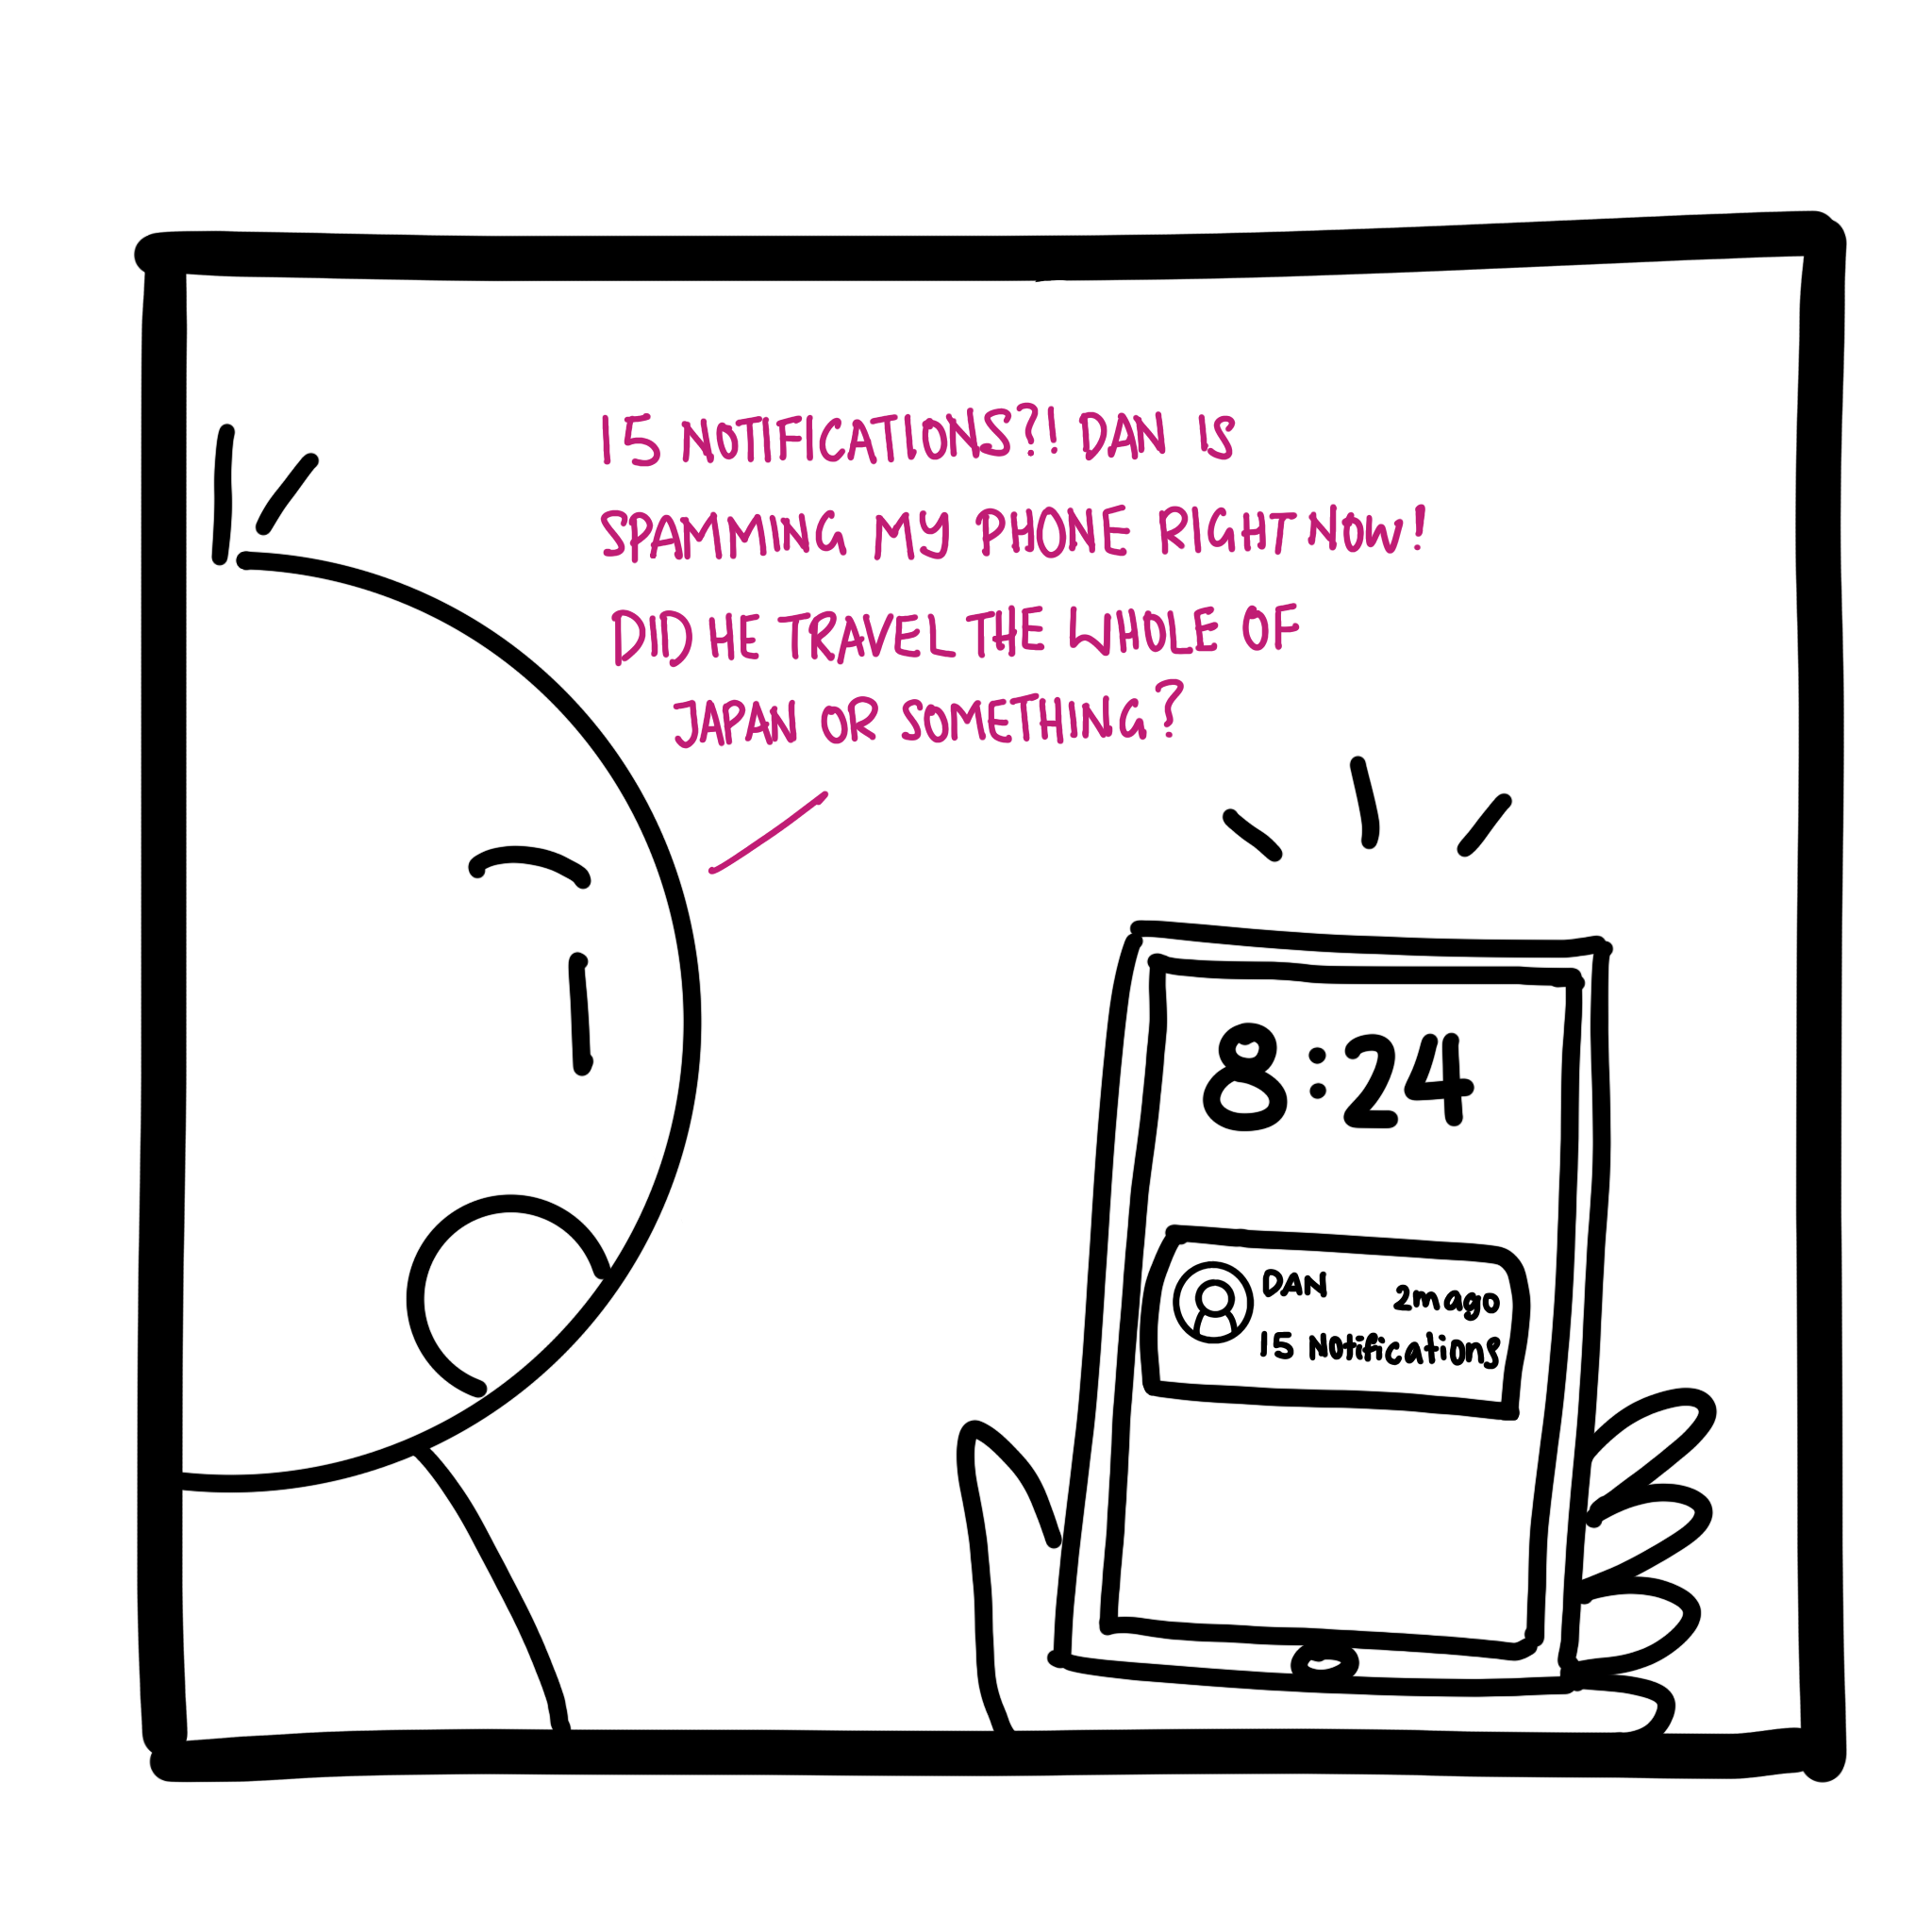 15 NOTIFICATIONS?! DAN IS
SPAMMING MY PHONE RIGHT NOW!
DID HE TRAVEL THE WHOLE OF
JAPAN OR SOMETHING?
8:24
DAN 2m ago
15 Notifications